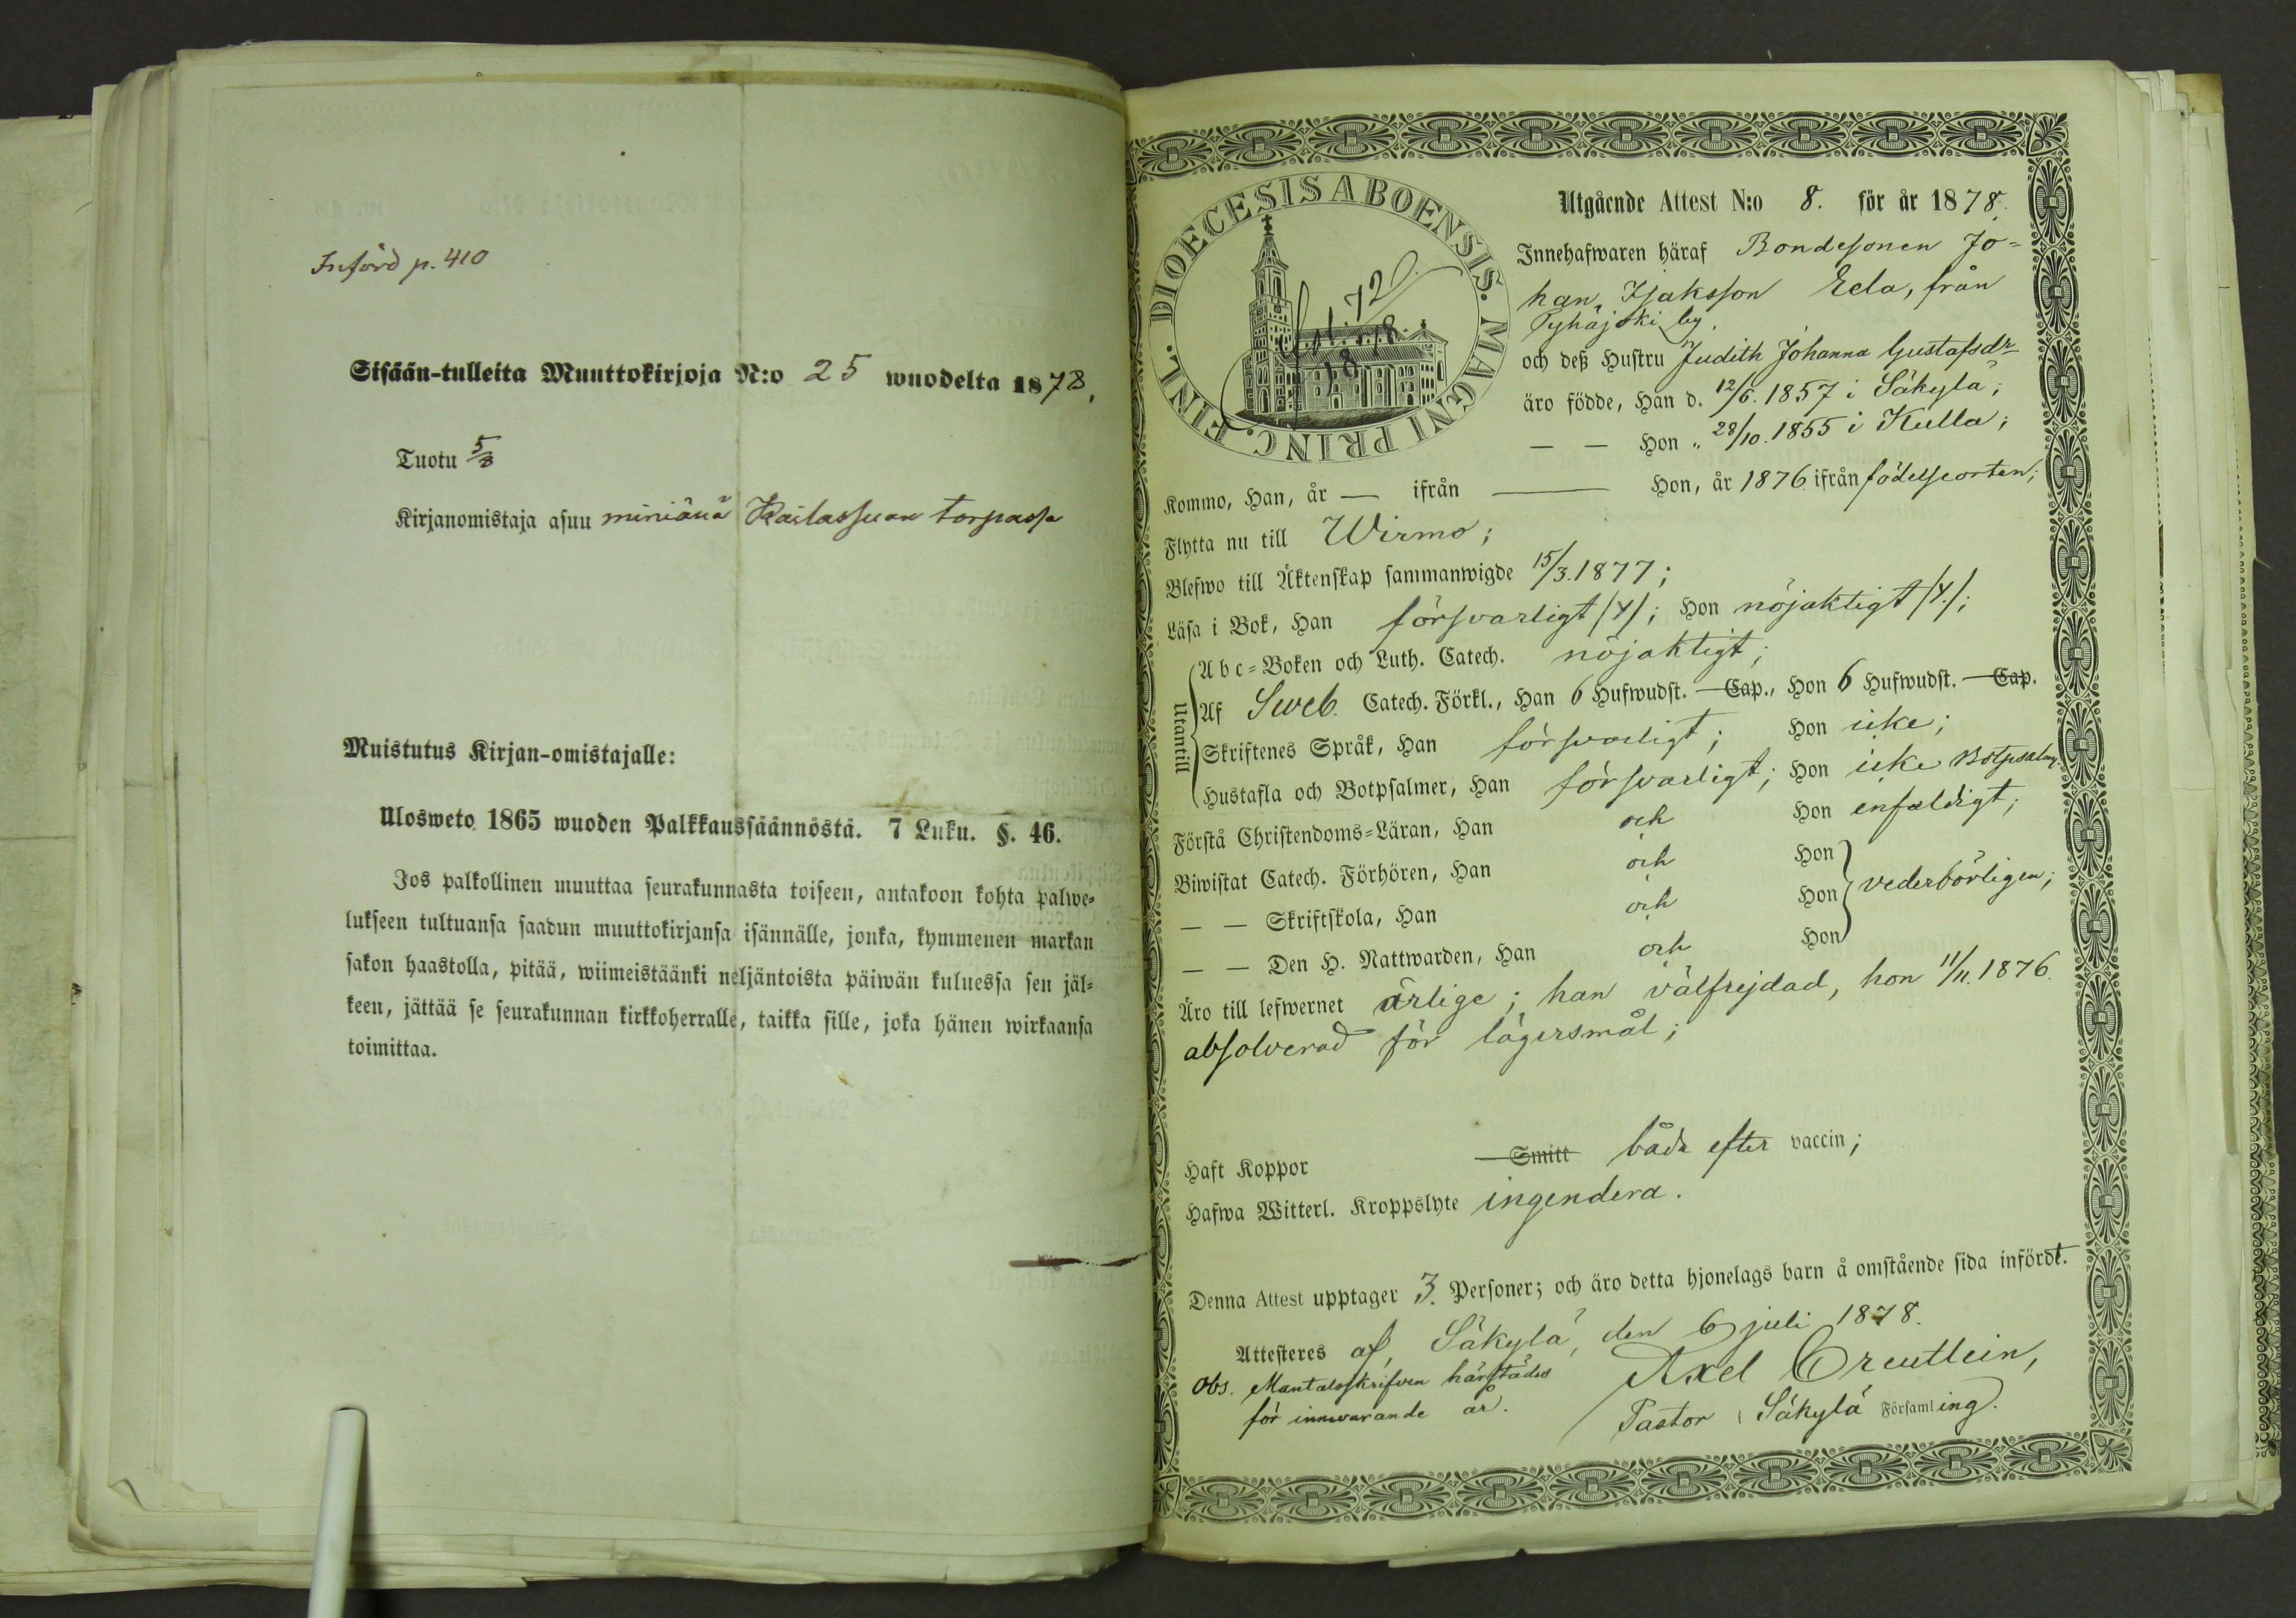 Införd p. 410
Sisään-tulleita Muuttokirjoja N:o 25 wuodelta 1878,
Tuotu 5/8
Kirjanomistaja asuu miniänä torpassa
Muistutus Kirjan-omistajalle:
Ulosweto 1865 wuoden Palkkaussäännöstä. 7 Luku. §. 46.
Jos palkollinen muuttaa seurakunnasta toiseen, antakoon kohta palwe=
lukseen tultuansa saadun muuttokirjansa isännälle, jonka, kymmenen markan
sakon haastolla, pitää, wiimeistäänki neljäntoista päiwän kuluessa sen jäl=
keen, jättää se seurakunnan kirkkoherralle, taikka sille, joka hänen wirkaansa
toimittaa.
DIOECESIS ABOENSIS. MAGNI PRINC. FINL.
fol. 72
1878.
Utgående Attest N:o 8. för år 1878.
Innehafwaren häraf Bondesonen Jo=
han Isaksson Eela, från
Pyhäjoki by,
och deß Hustru Judith Johanna Gustafsdr
äro födde, Han d. 12/6. 1857 i Säkylä;
— — Hon „ 28/10. 1855 i Kulla;
Kommo, Han, år — ifrån — Hon, år 1876 ifrån födelseorten;
Flytta nu till Wirmo;
Blefwo till Äktenskap sammanwigde 15/3. 1877;
Läsa i Bok, Han försvarligt /y/; Hon nöjaktigt /y./;
Utantill
Abc=Boken och Luth. Catech. nöjaktigt;
Af Sweb. Catech. Förkl., Han 6 Hufwudst. — Cap., Hon 6 Hufwudst. — Cap.
Skriftenes Språk, Han försvarligt; Hon icke;
Hustafla och Botpsalmer, Han försvarligt; Hon icke Botpsalmer.
Förstå Christendoms=Läran, Han och Hon enfaldigt;
Biwistat Catech. Förhören, Han och Hon
— — Skriftskola, Han och Hon vederbörligen;
— — Den H. Nattwarden, Han och Hon
Äro till lefwernet ärlige; han välfrejdad, hon 11/11. 1876.
absolverad för lägersmål;
Haft Koppor — Smitt båda efter vaccin;
Hafwa Witterl. Kroppslyte ingendera.
Denna Attest upptager 3. Personer; och äro detta hjonelags barn å omstående sida infördt.
Attesteres af, Säkylä, den 6 juli 1878.
Obs. Mantalsskrifven härstädes
för innevarande år.
Axel Creutlein,
Pastor i Säkylä Församling.